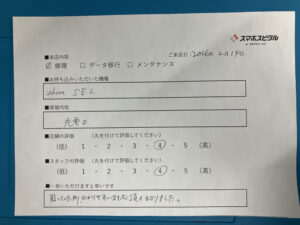 スマホスピタル
■来店内容
ご来店日 2026年2月14日
☑ 修理 □ データ移行 □ メンテナンス
■お持ち込みいただいた機種
iPhone SE2
■修理内容
充電口
■店舗の評価 (丸を付けて評価してください)
(低) 1 ・ 2 ・ 3 ・ ④ ・ 5 (高)
■スタッフの評価 (丸を付けて評価してください)
(低) 1 ・ 2 ・ 3 ・ ④ ・ 5 (高)
■一言いただけますと幸いです
困っていた所、わかりやすい対応 頂き